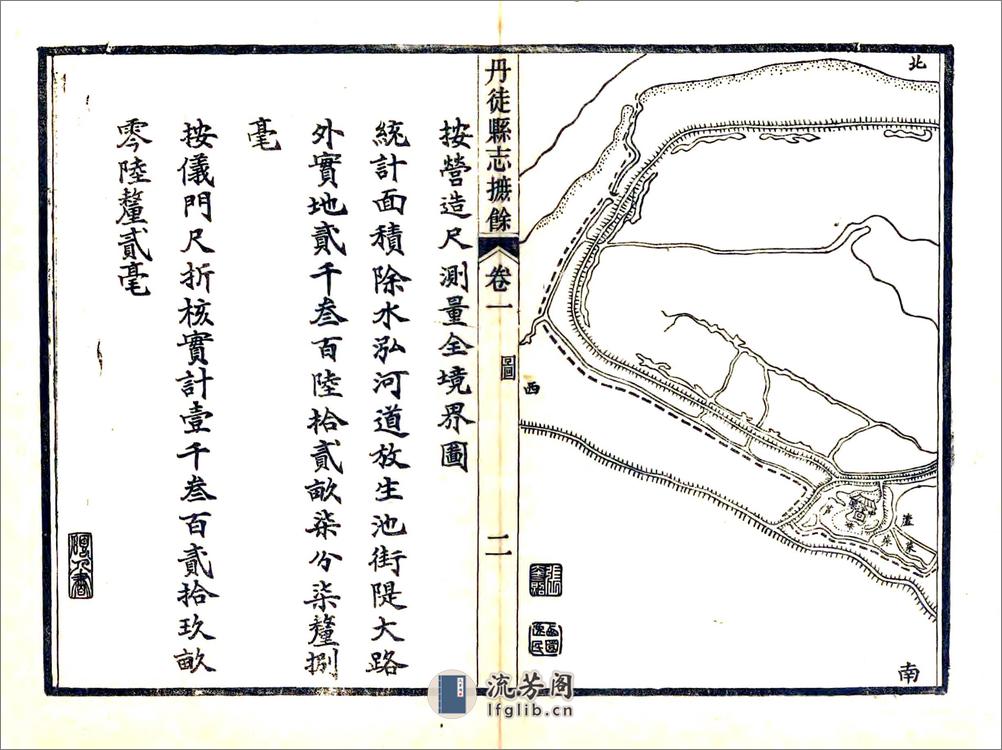 北
西
南
蘆
柴
丹徒縣志摭餘
卷一
圖
二
按營造尺測量全境界圖
統計面積除水泓河道放生池街隄大路
外實地貳千叁百陸拾貳畝柒分柒釐捌
毫
按儀門尺折核實計壹千叁百貳拾玖畝
零陸釐貳毫
流芳阁
lfglib.cn